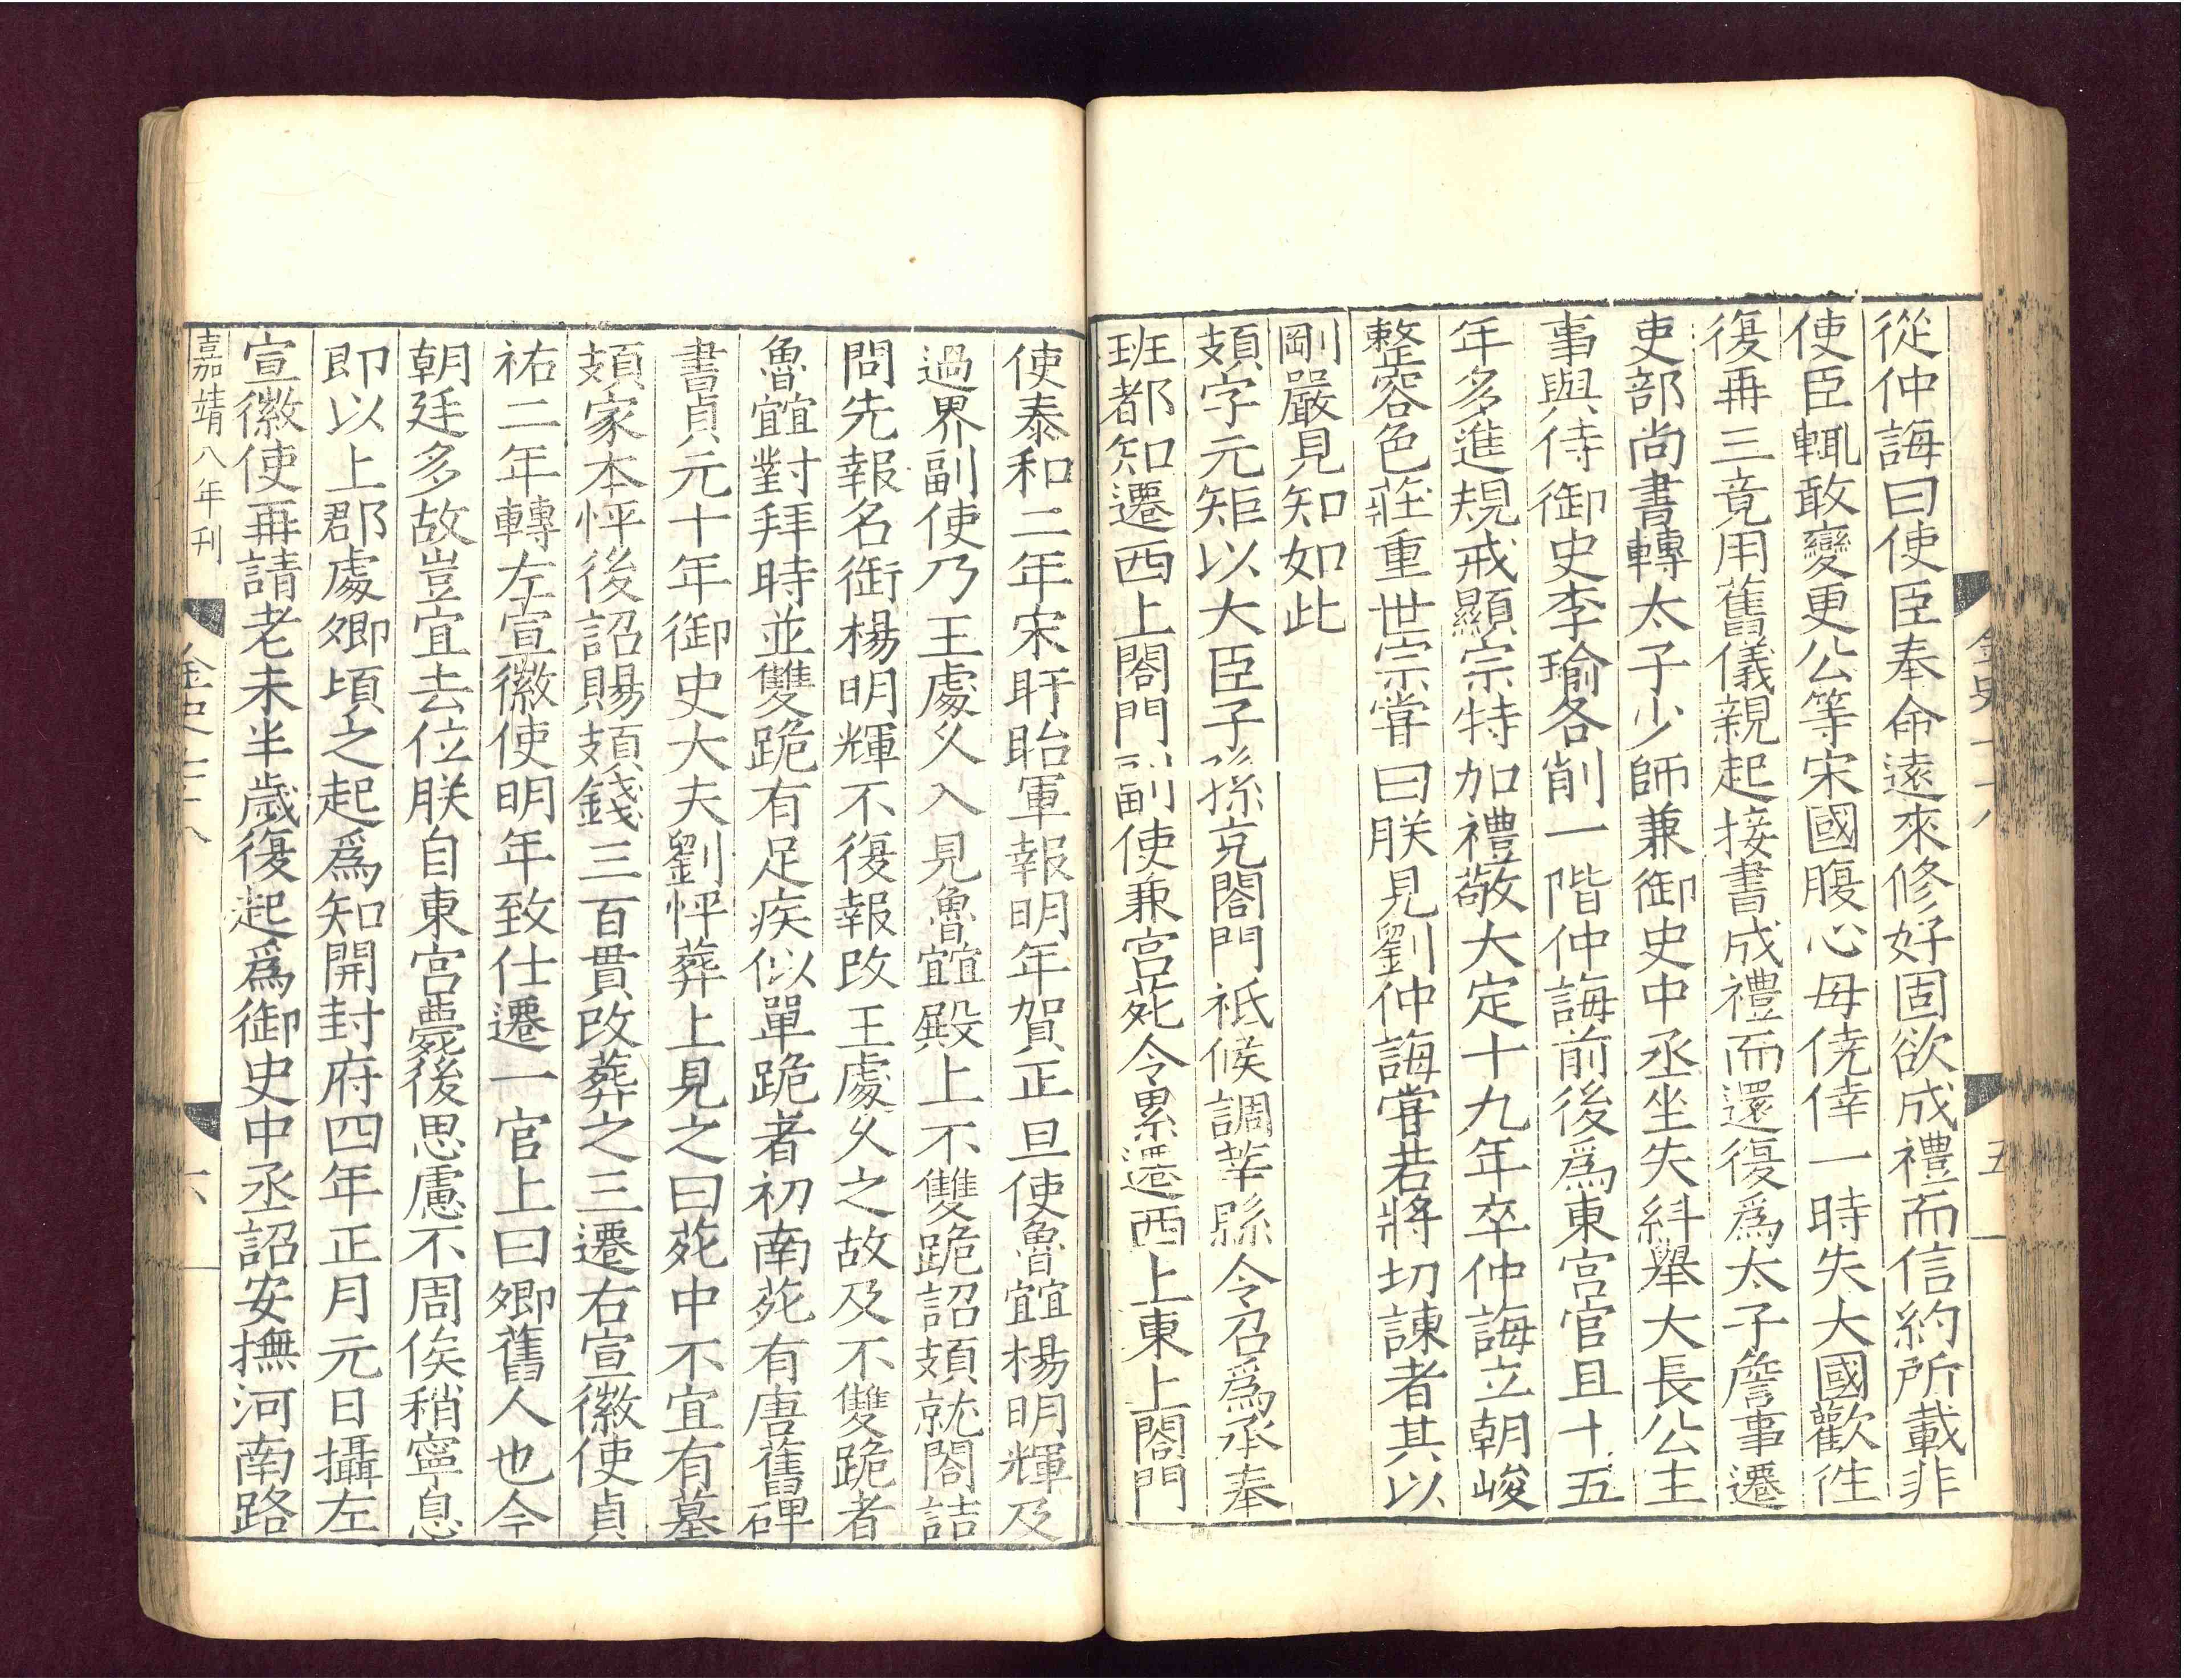 從仲誨曰使臣奉命遠來修好固欲成禮而信約所載非
使臣輒敢變更公等宋國腹心毋僥倖一時失大國歡往
復再三竟用舊儀親起接書成禮而還復爲太子詹事遷
吏部尚書轉太子少師兼御史中丞坐失糾舉大長公主
事與侍御史李瑜各削一階仲誨前後爲東宮官且十五
年多進規戒顯宗特加禮敬大定十九年卒仲誨立朝峻
整容色莊重世宗嘗曰朕見劉仲誨嘗若將切諫者其以
剛嚴見知如此
頍字元矩以大臣子孫充閤門祗候調莘縣令召爲承奉
班都知遷西上閤門副使兼宮苑令累遷西上東上閤門
使泰和二年宋盱眙軍報明年賀正旦使魯𧨏楊明輝及
過界副使乃王處久入見魯𧨏殿上不雙跪詔頍就閤詰
問先報名銜楊明輝不復報改王處久之故及不雙跪者
魯𧨏對拜時並雙跪有足疾似單跪者初南苑有唐舊碑
書貞元十年御史大夫劉怦葬上見之曰苑中不宜有墓
頍家本怦後詔賜頍錢三百貫改葬之三遷右宣徽使貞
祐二年轉左宣徽使明年致仕遷一官上曰卿舊人也今
朝廷多故豈宜去位朕自東宮薨後思慮不周俟稍寧息
即以上郡處卿頃之起爲知開封府四年正月元日攝左
宣徽使再請老未半歲復起爲御史中丞詔安撫河南路
嘉靖八年刊 金史七十八 六